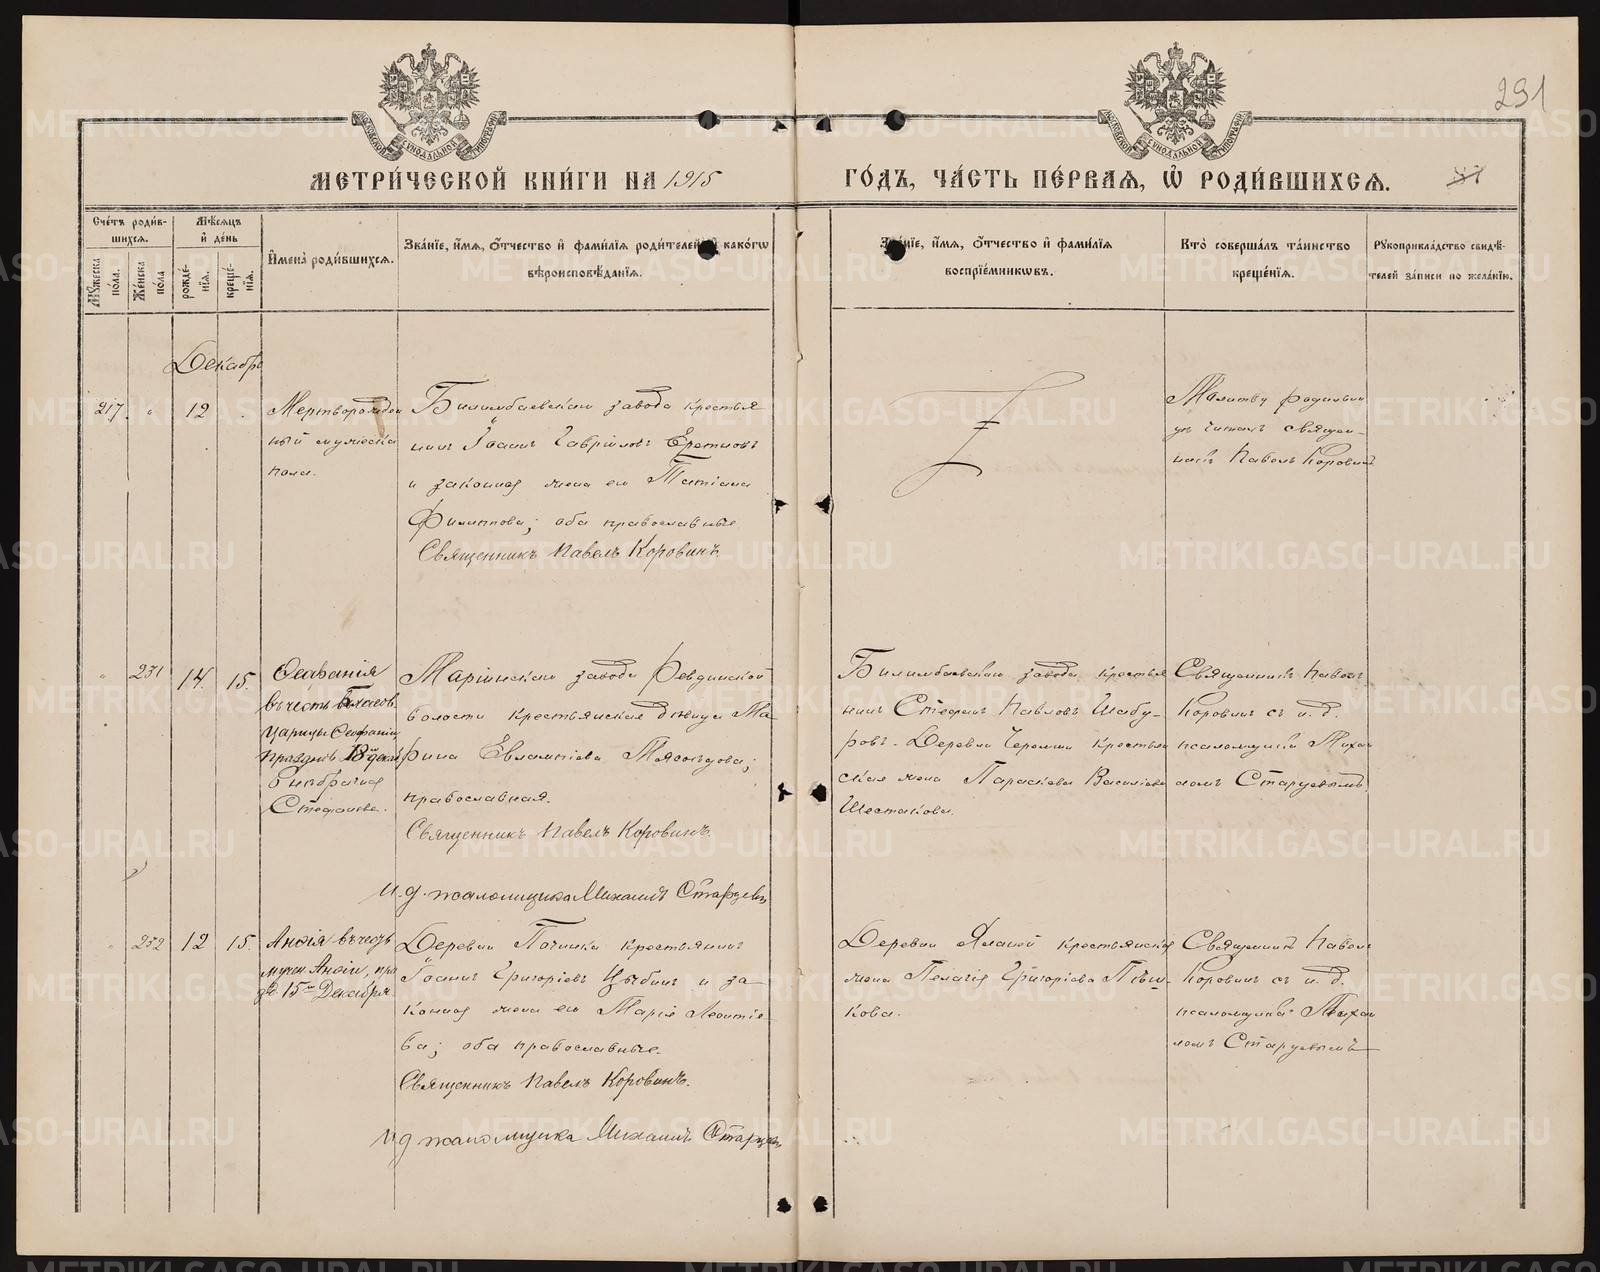 291
МЕТРИ́ЧЕСКОЙ КНИ́ГИ НА 1915
ГО́ДЪ, ЧА́СТЬ ПЕ́РВАЯ, Ѽ РОДИ́ВШИХСЯ.
Сче́тъ роди́в-
шихся.
Му́жеска
по́ла.
Же́нска
по́ла
Мѣ́сяцъ
и҆ де́нь
рожде́-
нїя.
креще́-
нїя.
И҆мена̀ роди́вшихся.
Зва́нїе, и҆́мя, ѻ҆́тчество и҆ фами́лїя роди́телей и҆ како́гѡ
вѣроисповѣ́данїя.
Зва́нїе, и҆́мя, ѻ҆́тчество и҆ фами́лїя
воспрїе́мникѡвъ.
Кто̀ соверша́лъ та́инство
креще́нїя.
Рꙋкоприкла́дство свидѣ́-
телей за́писи по жела́нїю.
Декабрь
217. " 12 .
Мертворожден
ный мужеска
пола.
Билимбаевскаго завода крестья
нинъ Іоаннъ Гавріиловъ Еретновъ
и законная жена его Татіана
Филиппова; оба православные
Священникъ Павелъ Коровинъ.
Молитву родильни
цѣ читалъ священ-
никъ Павелъ Коровинъ
" 231 14. 15.
Ѳеофанія
въ честь
Царицы Ѳеофаніи,
праздн.
Внѣбрачная
Стефанова.
Маріинскаго завода Ревдинской
волости крестьянская дѣвица Ма-
рина Евлампіева
православная.
Священникъ Павелъ Коровинъ.
И. д. псаломщика Михаилъ Старцевъ
Билимбаевскаго завода крестья
нинъ Стефанъ Павловъ Шабу-
ровъ. Деревни Черемши крестьян
ская жена Параскева Васильева
Шестакова.
Священникъ Павелъ
Коровинъ съ и. д.
псаломщика Миха
иломъ Старцевымъ.
" 232 12 15.
Анѳія въ честь
мучен. Анѳіи, пра
зд. 15го Декабря.
Деревни Починка крестьянинъ
Іоаннъ Григоріевъ Цыбинъ и за-
конная жена его Марія Леонтіе-
ва; оба православные.
Священникъ Павелъ Коровинъ.
И д псаломщика Михаилъ Старцевъ
Деревни Яланой крестьянская
жена Пелагія Григоріева Пѣш-
кова.
Священникъ Павелъ
Коровинъ съ и. д.
псаломщика Миха
иломъ Старцевымъ
METRIKI.GASO-URAL.RU